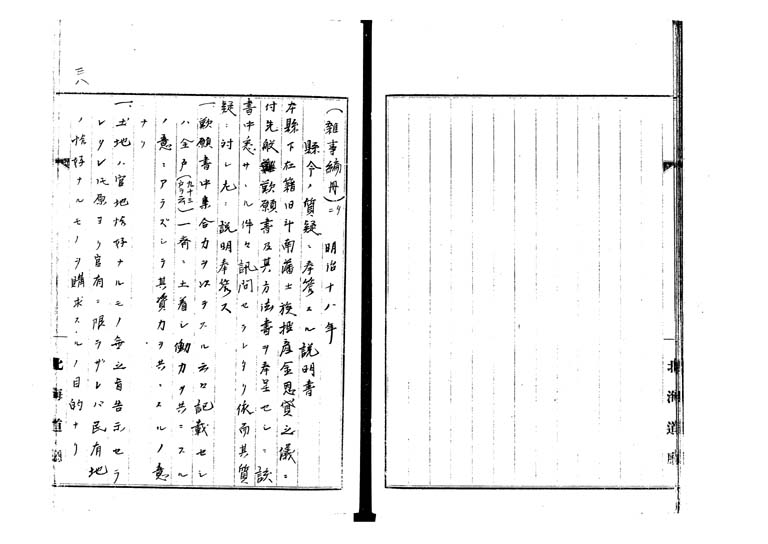 (雑事編冊)ニ 明治十八年
縣令ノ質疑ニ奉答スル説明書
本縣下在籍旧斗南藩士族授産金恩貸之儀ニ
付先般歎願書及其方法書ヲ奉呈セシニ該
書中悉サヾル件々訊問セラレタリ依而其質
疑ニ対シ左ニ説明奉答ス
一、歎願書中集合力ヲ以テスル云々記載セシ
ハ全戸(九十三戸ヲ云)一斉ニ土着シ働力ヲ共ニスル
ノ意ニアラズシテ其資力ヲ共ニスルノ意
ナリ
一、土地ハ官地恰好ナルモノ無之旨告示セラ
レタレ氏原ヨリ官有ニ限ラザレバ民有地
ノ恰好ナルモノヲ購求スルノ目的ナリ
三八
北海道廳
北海道廳